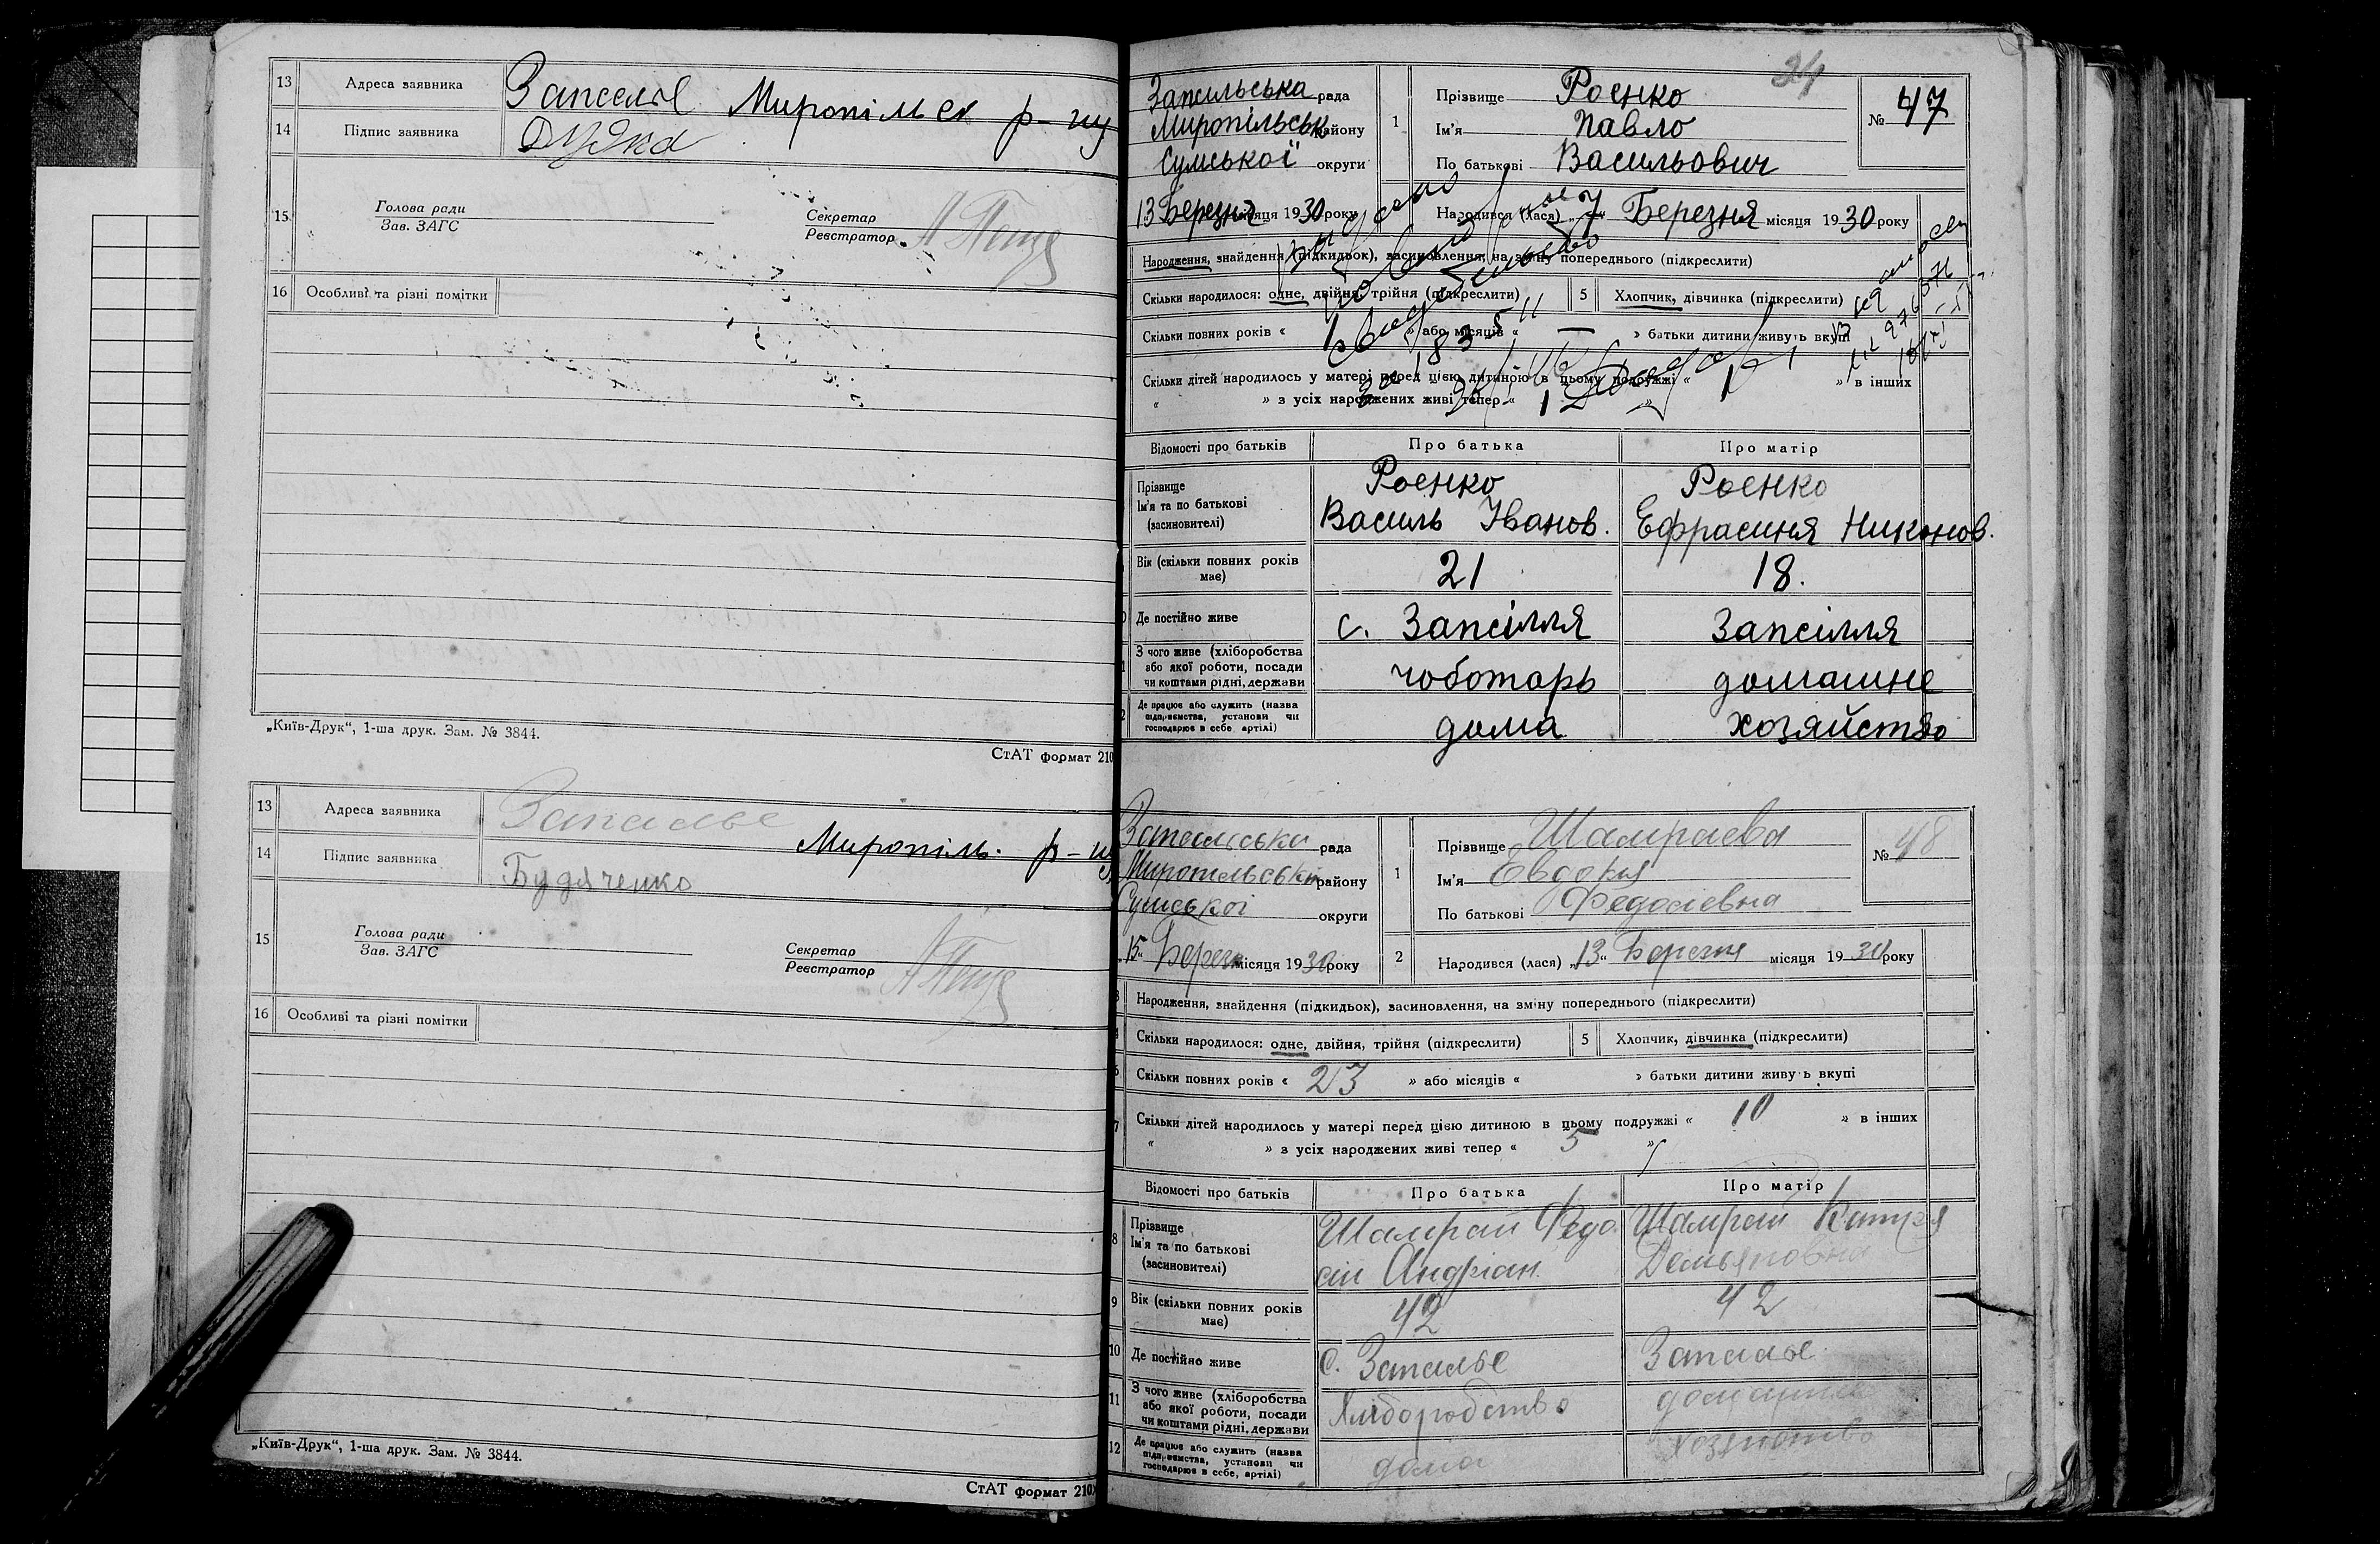 13 Адреса заявника Запселье Миропільск р-ну
14 Підпис заявника
15. Голова ради
Зав. ЗАГС
Секретар
Реєстратор
16 Особливі та різні помітки
„Київ-Друк“, 1-ша друк. Зам. № 3844.
СтАТ формат 210
13 Адреса заявника Запселье Миропіль. р-ну
14 Підпис заявника Будяченко
15 Голова ради
Зав. ЗАГС
Секретар
Реєстратор
16 Особливі та різні помітки
„Київ-Друк“, 1-ша друк. Зам. № 3844.
СтАТ формат 210
24
Запсильська рада
Миропільськ району
Сумської округи
13 Березня місяця 1930 року
1 Прізвище Роєнко
Ім'я Павло
По батькові Васильович
№ 47
Народився (лася) „7“ Березня місяця 1930 року
Народження, знайдення (підкидьок), засиновлення, на зміну попереднього (підкреслити)
Скільки народилося: одне, двійня, трійня (підкреслити) 5 Хлопчик, дівчинка (підкреслити)
Скільки повних років « 1 » або місяців « — » батьки дитини живуть вкупі
Скільки дітей народилось у матері перед цією дитиною в цьому подружжі « 1 » в інших
« » з усіх народжених живі тепер « 1 »
Відомості про батьків Про батька Про матір
Прізвище Роєнко Роєнко
Ім'я та по батькові Василь Іванов. Ефрасиня Никонов.
(засиновителі)
Вік (скільки повних років має) 21 18.
Де постійно живе с. Запсілля Запсілля
З чого живе (хліборобства або якої роботи, посади чи коштами рідні, держави чоботарь домашнє
Де працює або служить (назва підприємства, установи чи господарює в себе артілі) дома хозяйство
Запсильська рада
Миропильськи району
Сумської округи
„15“ Березн місяця 1930 року
1 Прізвище Шамраєва
Ім'я Евдокия
По батькові Федосіевна
№ 48
2 Народився (лася) „13“ Березня місяця 1930 року
Народження, знайдення (підкидьок), засиновлення, на зміну попереднього (підкреслити)
Скільки народилося: одне, двійня, трійня (підкреслити) 5 Хлопчик, дівчинка (підкреслити)
Скільки повних років « 23 » або місяців « » батьки дитини живуть вкупі
7 Скільки дітей народилось у матері перед цією дитиною в цьому подружжі « 10 » в інших
« » з усіх народжених живі тепер « 5 »
Відомості про батьків Про батька Про матір
8 Прізвище Шамрай Федо Шамрай
Ім'я та по батькові сій Андріан. Демьяновна
(засиновителі)
9 Вік (скільки повних років має) 42 42
10 Де постійно живе с. Запселье Запселье
11 З чого живе (хліборобства або якої роботи, посади чи коштами рідні, держави Хлібородство домашне
12 Де працює або служить (назва підприємства, установи чи господарює в себе, артілі) дома хозяйство